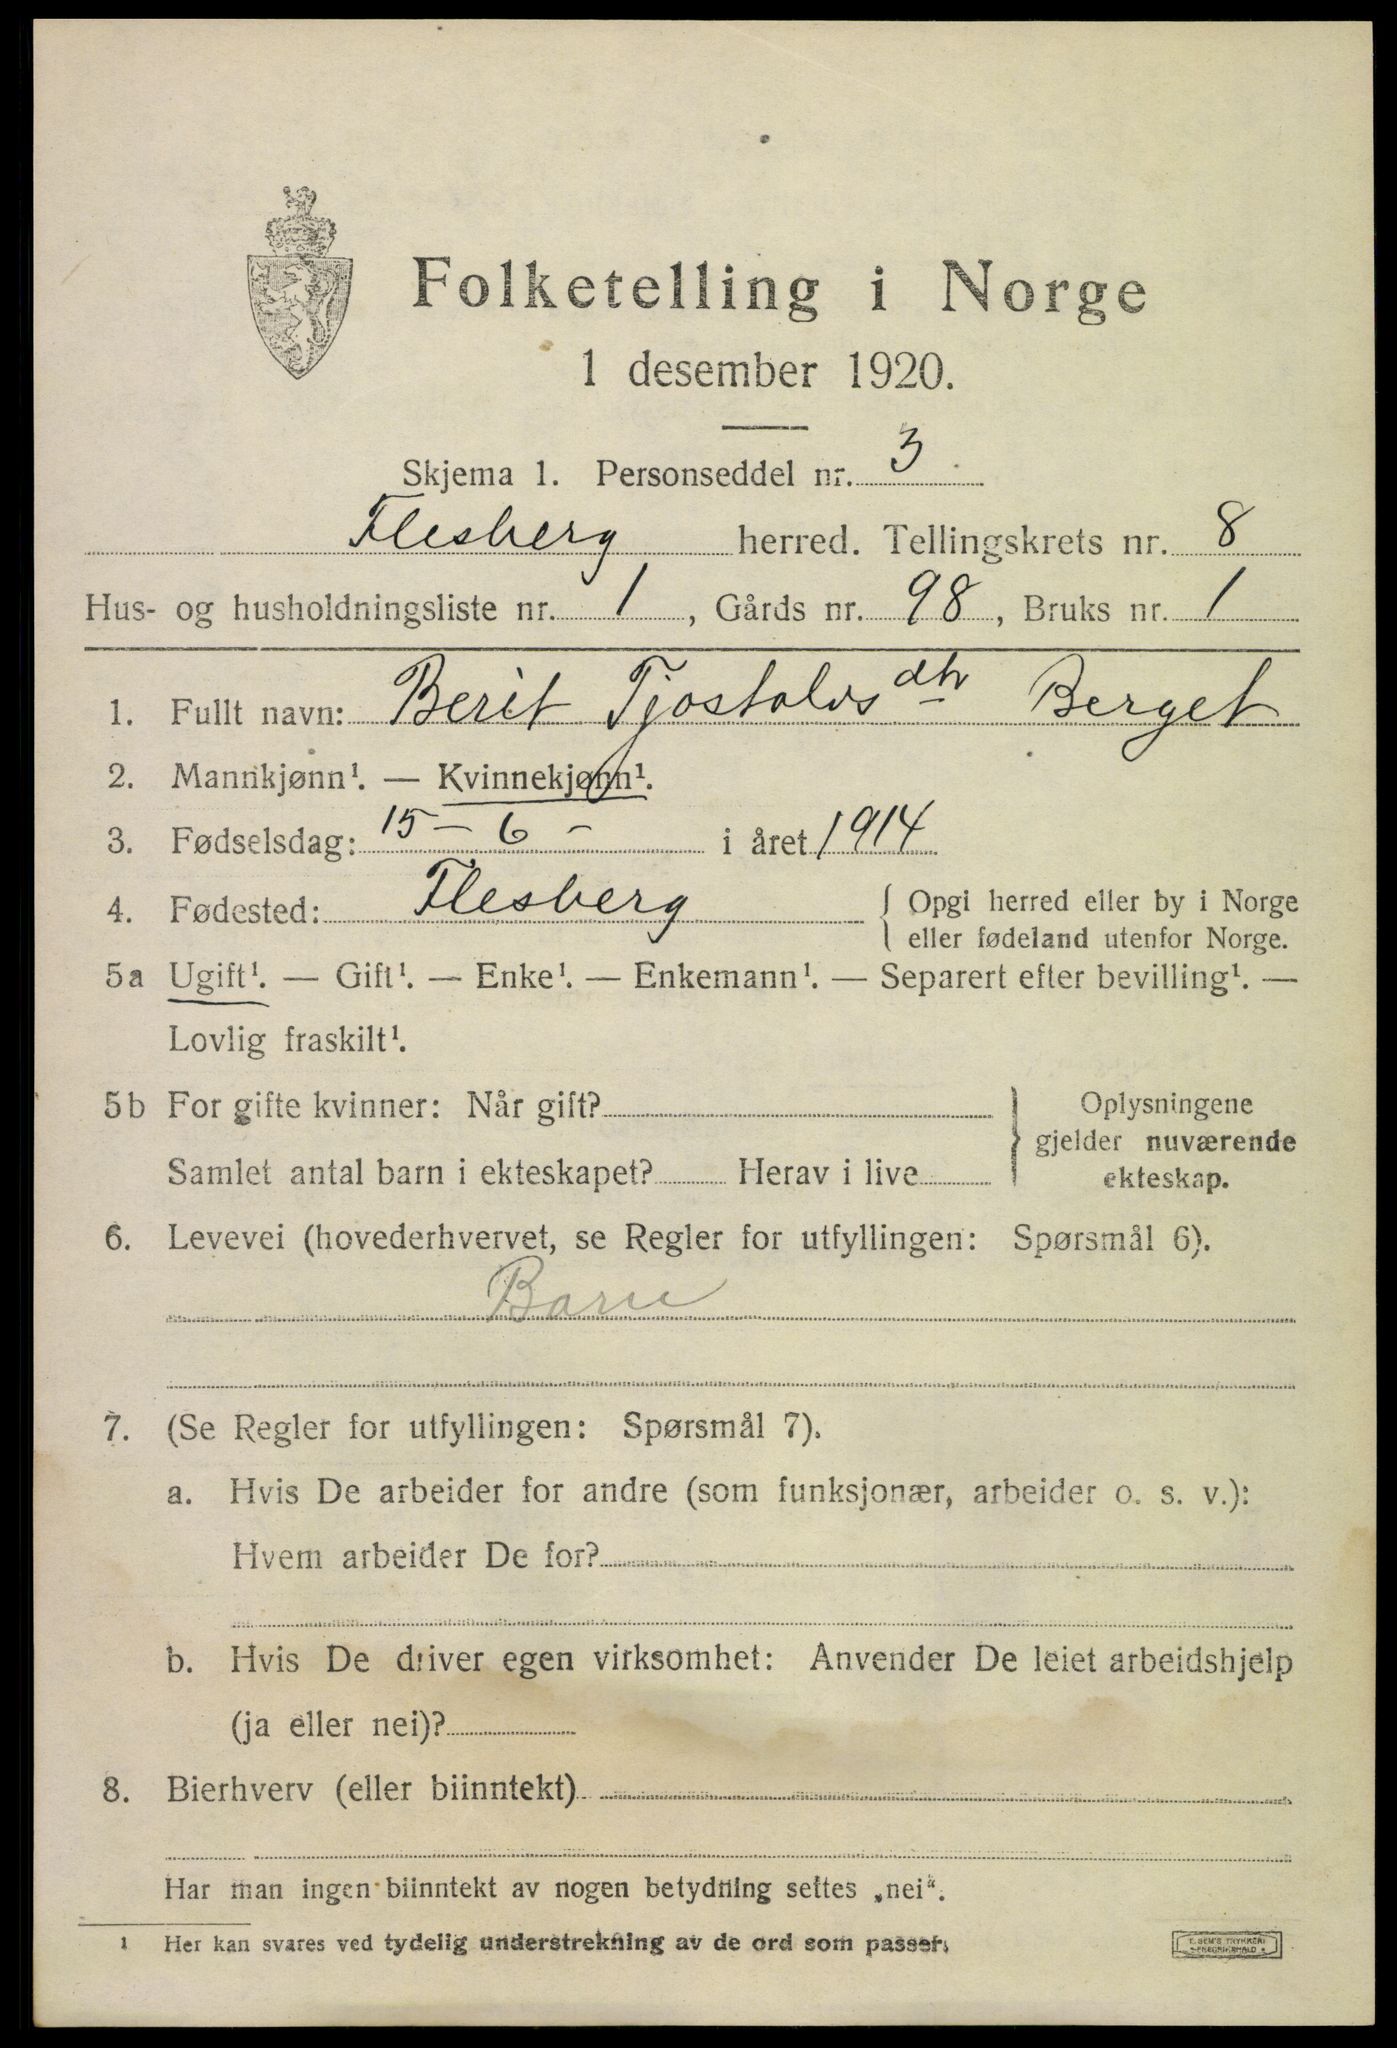 Folketelling i Norge
1 desember 1920.
Skjema 1. Personseddel nr. 3
Flesberg herred. Tellingskrets nr. 8
Hus- og husholdningsliste nr. 1, Gårds nr. 98, Bruks nr. 1
1. Fullt navn: Berit Tjostolvsdtr Berget
2. Mannkjønn¹. — Kvinnekjønn¹.
3. Fødselsdag: 15 – 6 – i året 1914
4. Fødested: Flesberg { Opgi herred eller by i Norge
eller fødeland utenfor Norge.
5a Ugift¹. — Gift¹. — Enke¹. — Enkemann¹. — Separert efter bevilling¹. —
Lovlig fraskilt¹.
5b For gifte kvinner: Når gift?
Samlet antal barn i ekteskapet? Herav i live
} Oplysningene
gjelder nuværende
ekteskap.
6. Levevei (hovederhvervet, se Regler for utfyllingen: Spørsmål 6).
Barn
7. (Se Regler for utfyllingen: Spørsmål 7).
a. Hvis De arbeider for andre (som funksjonær, arbeider o. s. v.):
Hvem arbeider De for?
b. Hvis De driver egen virksomhet: Anvender De leiet arbeidshjelp
(ja eller nei)?
8. Bierhverv (eller biinntekt)
Har man ingen biinntekt av nogen betydning settes „nei“.
1 Her kan svares ved tydelig understrekning av de ord som passer.
E. SEM'S TRYKKERI
FREDRIKSHALD